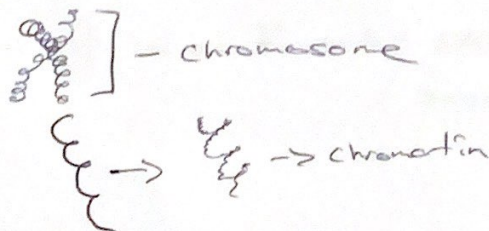 ] - chromosome
→ → chromatin